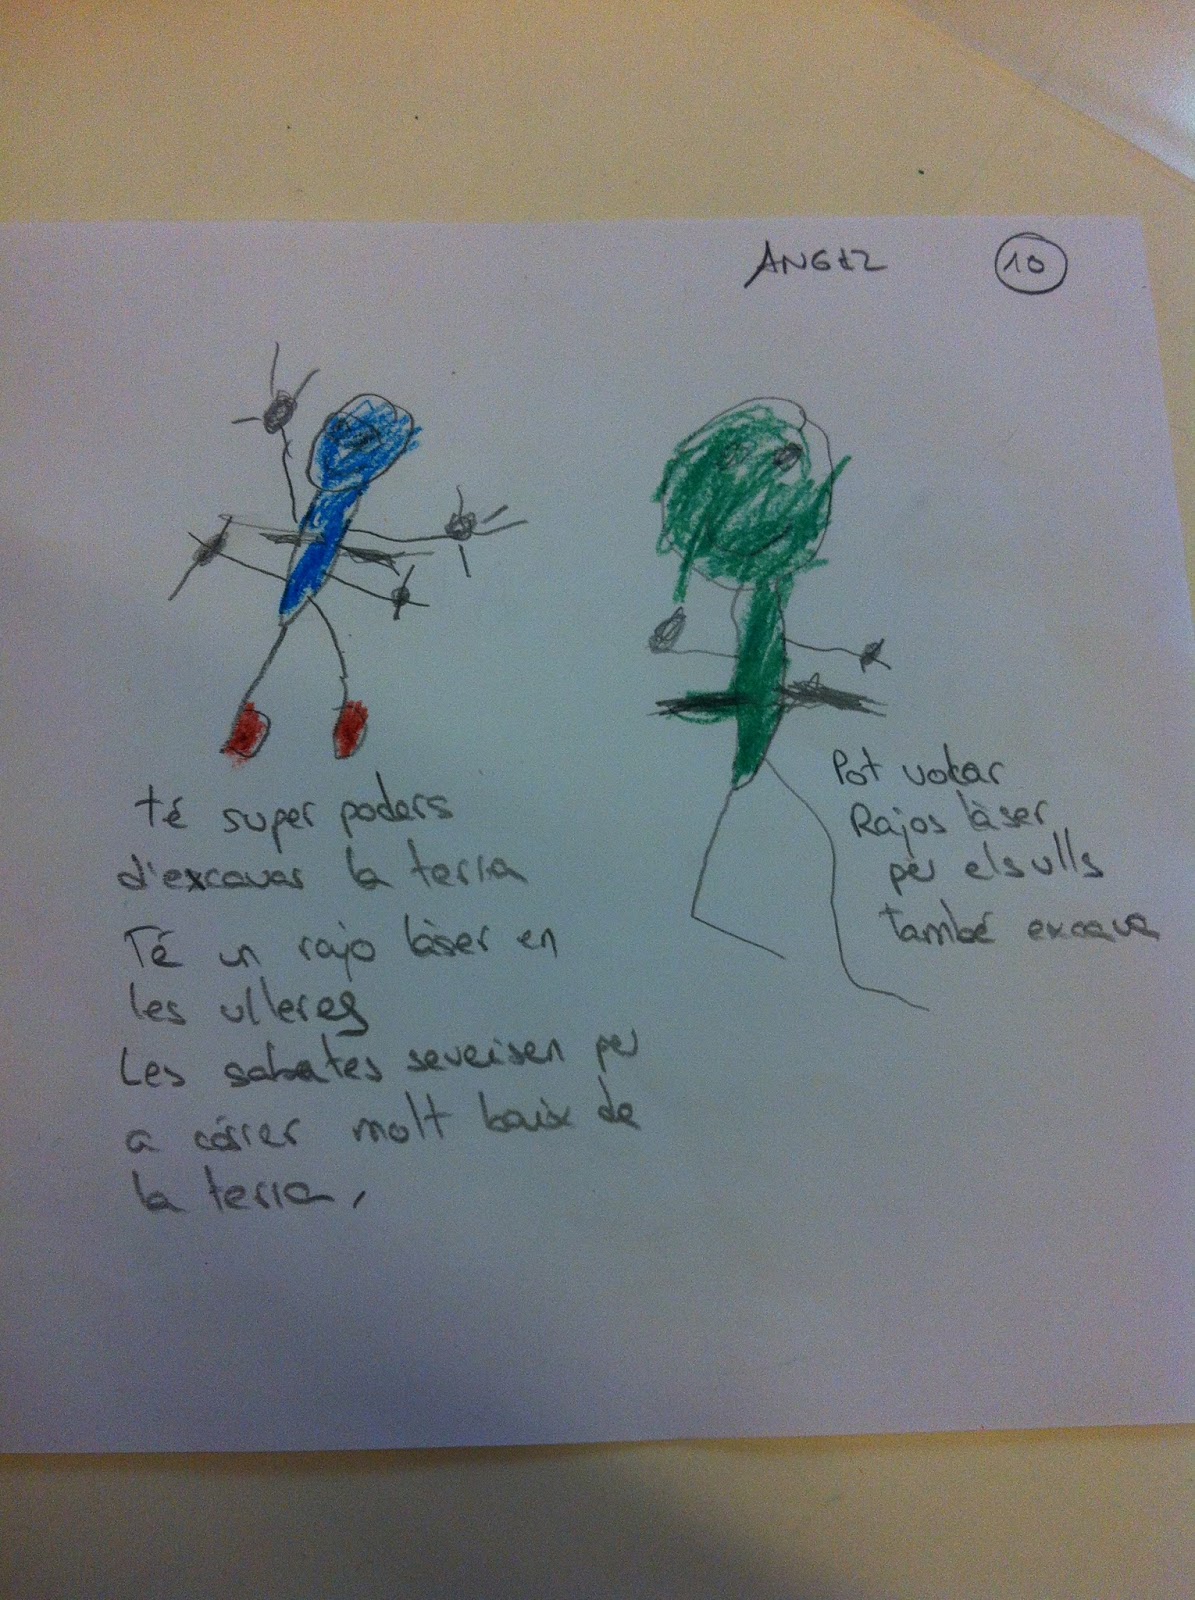 ANGEL
10
té super poders
d'excavar la terra
Té un rajo làser en
les ulleres
Les sabates serveixen per
a córrer molt baix de
la terra,
Pot votar
Rajos làser
per els ulls
també excava